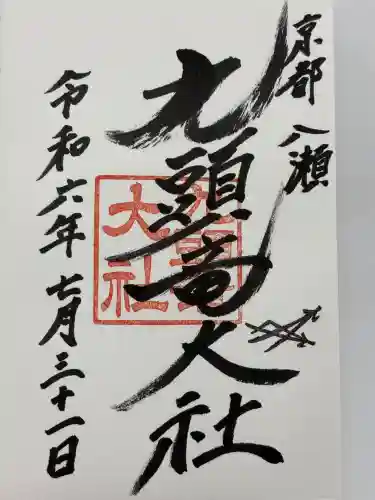 京都 八瀬
九頭竜大社
九頭竜大社
令和六年七月三十一日